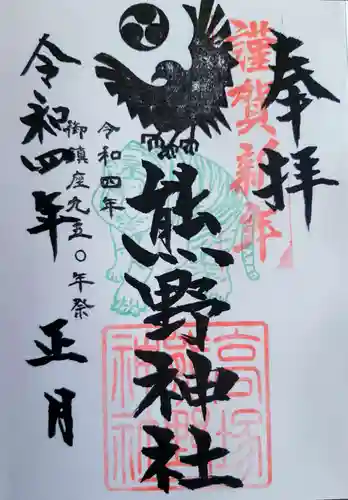 奉拝
謹賀新年
熊野神社
高塚熊野神社
令和四年
御鎮座九五〇年祭
令和四年 正月